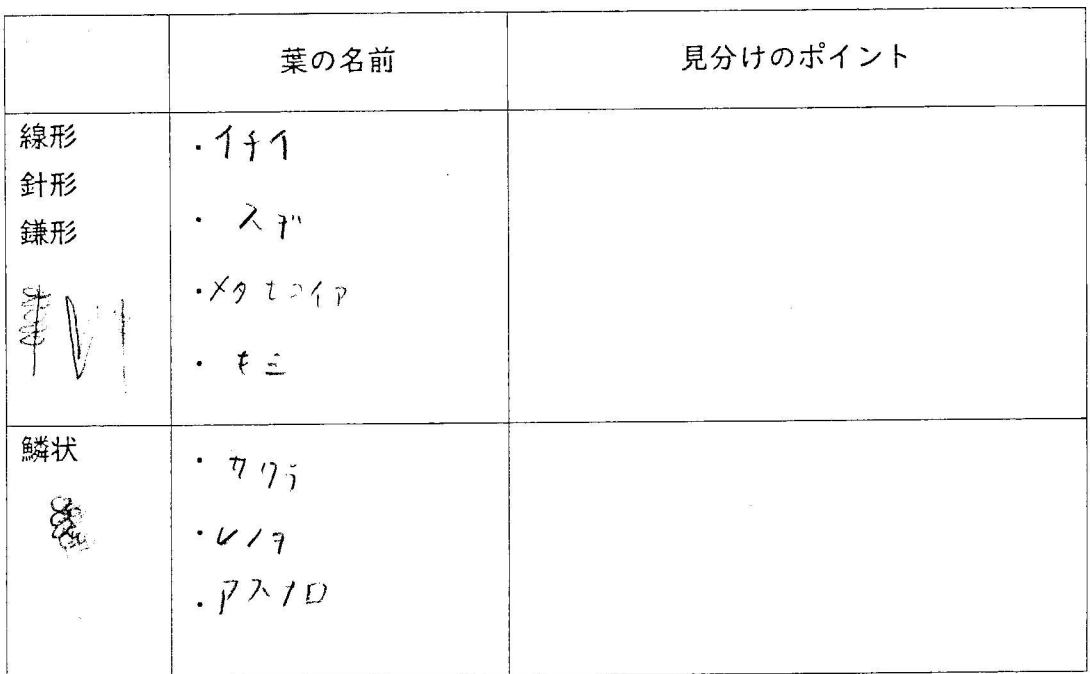 葉の名前 見分けのポイント
線形
針形
鎌形
・イチイ
・スギ
・メタセコイア
・モミ
鱗状
・サワラ
・ヒノキ
・アスナロ